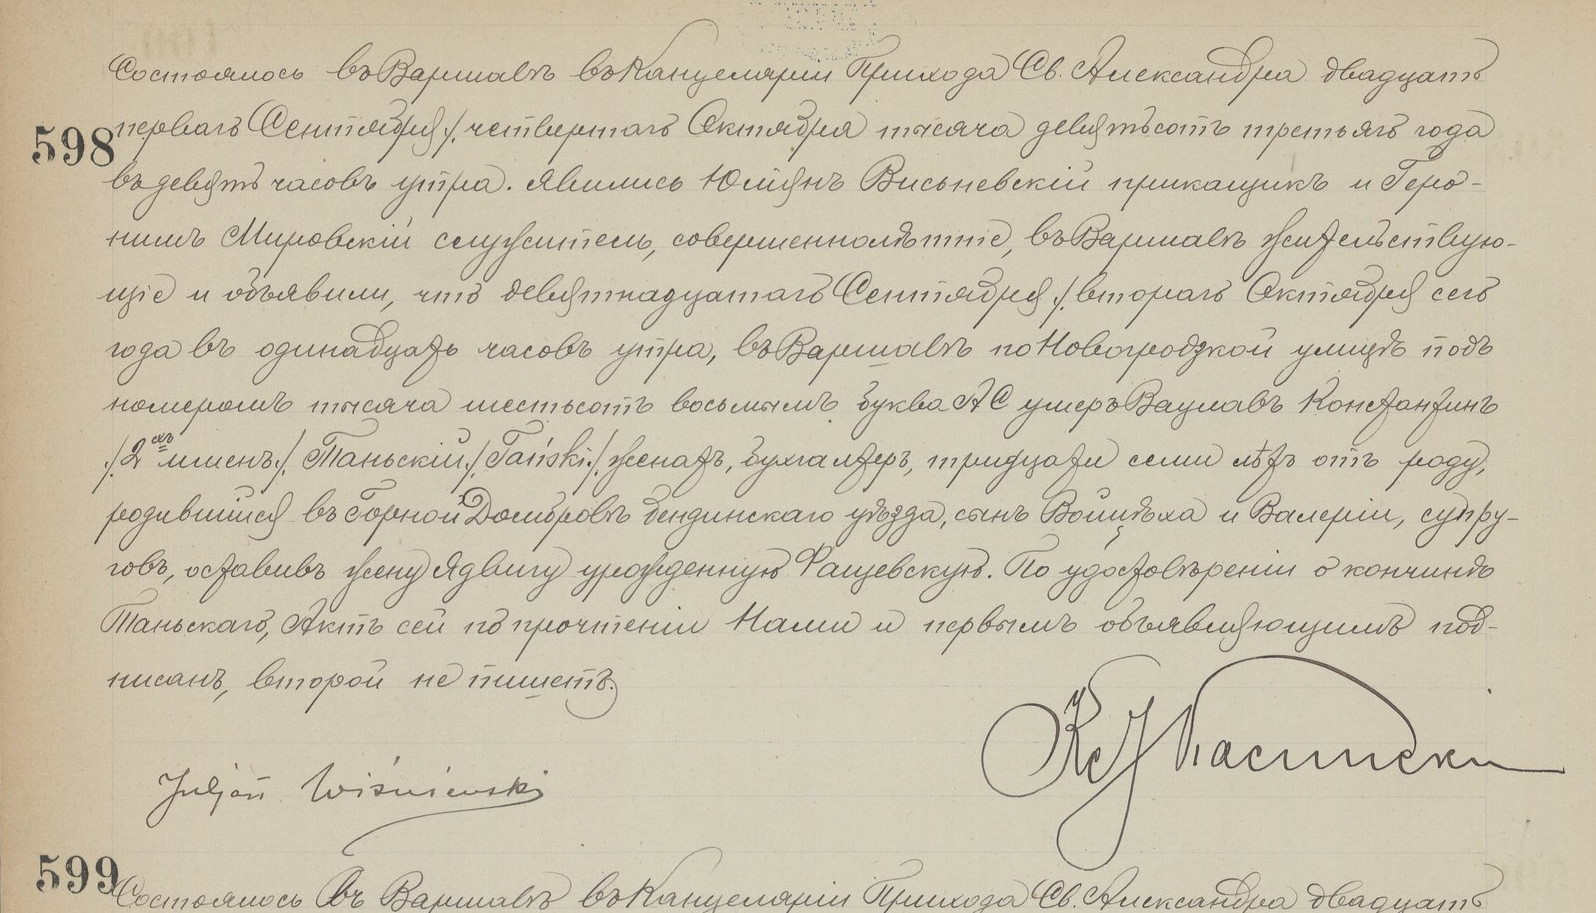 Состоялось въ Варшавѣ въ Канцеляріи Прихода Св. Александра двадцать
598
перваго Сентября /четвертаго Октября тысяча девятьсотъ третьяго года
въ девять часовъ утра. Явились Юліянъ Висьневскій прикащикъ и Геро-
нимъ Мировскій служитель, совершеннолѣтніе, въ Варшавѣ жительствую-
щіе и объявили, что девятнадцатаго Сентября /втораго Октября сего
года въ одинадцать часовъ утра, въ Варшавѣ по Новогродзкой улицѣ подъ
номеромъ тысяча шестьсотъ восьмымъ буква АС умеръ Вацлавъ Константинъ
/2хъ именъ/ Таньскій /Tański/ женатъ, бухгалтеръ, тридцати семи лѣтъ отъ роду,
родившійся въ Горной Домбровѣ бендинскаго уѣзда, сынъ Войцѣха и Валеріи, супру-
говъ, оставивъ жену Ядвигу урожденную Фащевскую. По удостовѣреніи о кончинѣ
Таньскаго, Актъ сей по прочтеніи Нами и первымъ объявляющимъ под-
писанъ, второй не пишетъ.
Juljan Wiśniewski
599
Состоялось въ Варшавѣ въ Канцеляріи Прихода Св. Александра двадцать